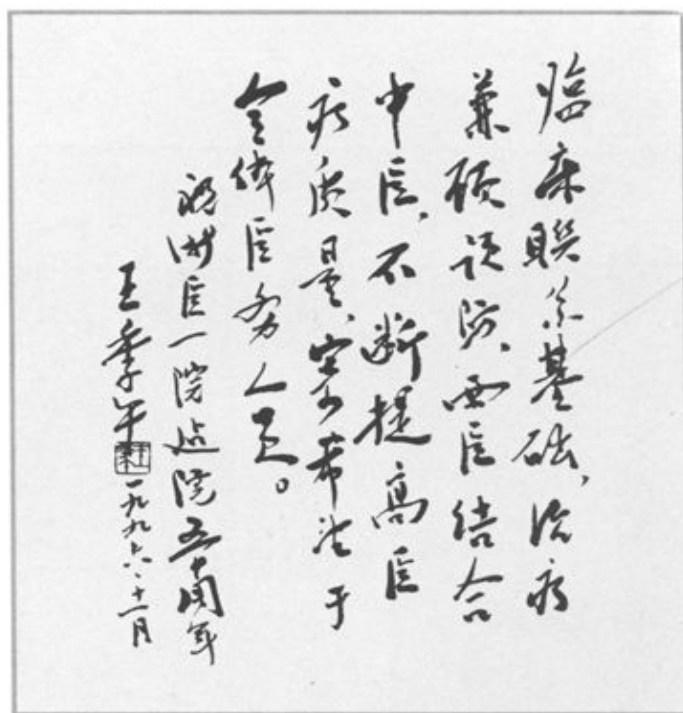 临床联系基础、治疗
兼顾预防、西医结合
中医、不断提高医
疗质量、寄希望于
全体医务人员。
祝浙医一院建院五十周年
王季午 一九九六、十一月